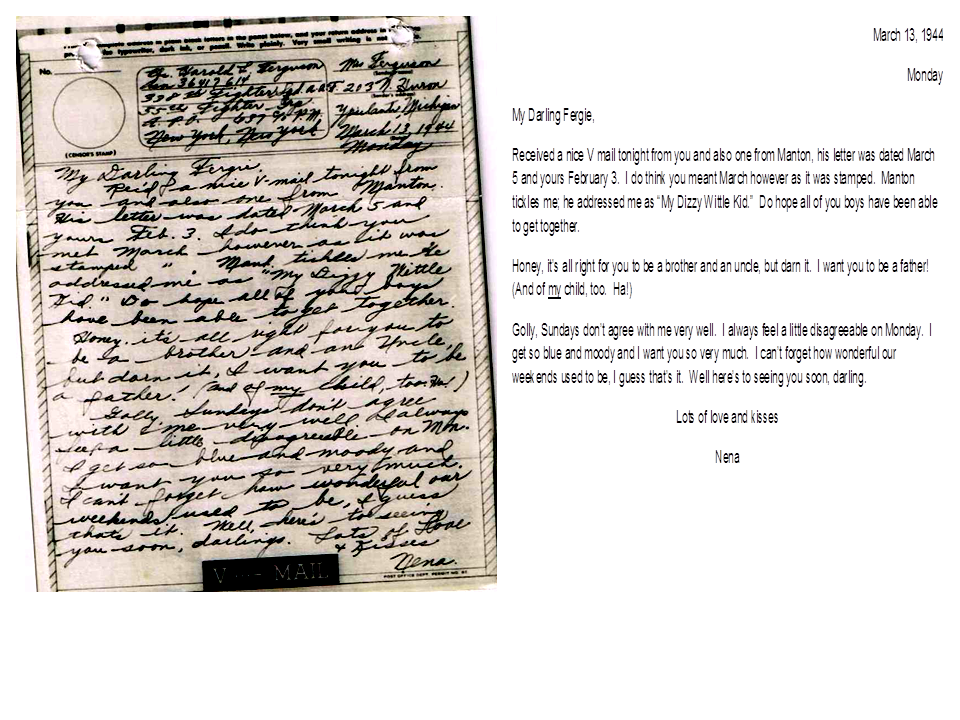 complete address in plain block letters in the panel below, and your return address in
typewriter, dark ink, or pencil. Write plainly. Very small writing is not
No.
(CENSOR'S STAMP)
Harold L. Ferguson
36417614
338th Fighter Sqd. A.A.F.
55th Fighter Grp
A.P.O. 637 % P.M.
New York, New York
Mrs Ferguson
203 N. Huron
Ypsilanti, Michigan
March 13, 1944
Monday
My Darling Fergie,
Rec'd a nice V-mail tonight from
you and also one from Manton.
His letter was dated March 5 and
yours Feb. 3. I do think you
met March however as it was
stamped ". Mant. tickles me He
addressed me as "My Dizzy Wittle
Kid." Do hope all of you boys
have been able to get together.
Honey, it's all right for you to
be a brother and an Uncle,
but darn it, I want you to be
a father! (and of my child, too. Ha!)
Golly, Sundays don't agree
with me very well. I always
feel a little disagreeable on Mon.
I get so blue and moody and
I want you so very much.
I can't forget how wonderful our
weekends used to be, I guess
thats it. Well, here's to seeing
you soon, darling. Lots of Love
& Kisses
Nena.
V ··· — MAIL
POST OFFICE DEPT. PERMIT NO.
March 13, 1944
Monday
My Darling Fergie,
Received a nice V mail tonight from you and also one from Manton, his letter was dated March
5 and yours February 3. I do think you meant March however as it was stamped. Manton
tickles me; he addressed me as “My Dizzy Wittle Kid.” Do hope all of you boys have been able
to get together.
Honey, it’s all right for you to be a brother and an uncle, but darn it. I want you to be a father!
(And of my child, too. Ha!)
Golly, Sundays don’t agree with me very well. I always feel a little disagreeable on Monday. I
get so blue and moody and I want you so very much. I can’t forget how wonderful our
weekends used to be, I guess that’s it. Well here’s to seeing you soon, darling.
Lots of love and kisses
Nena